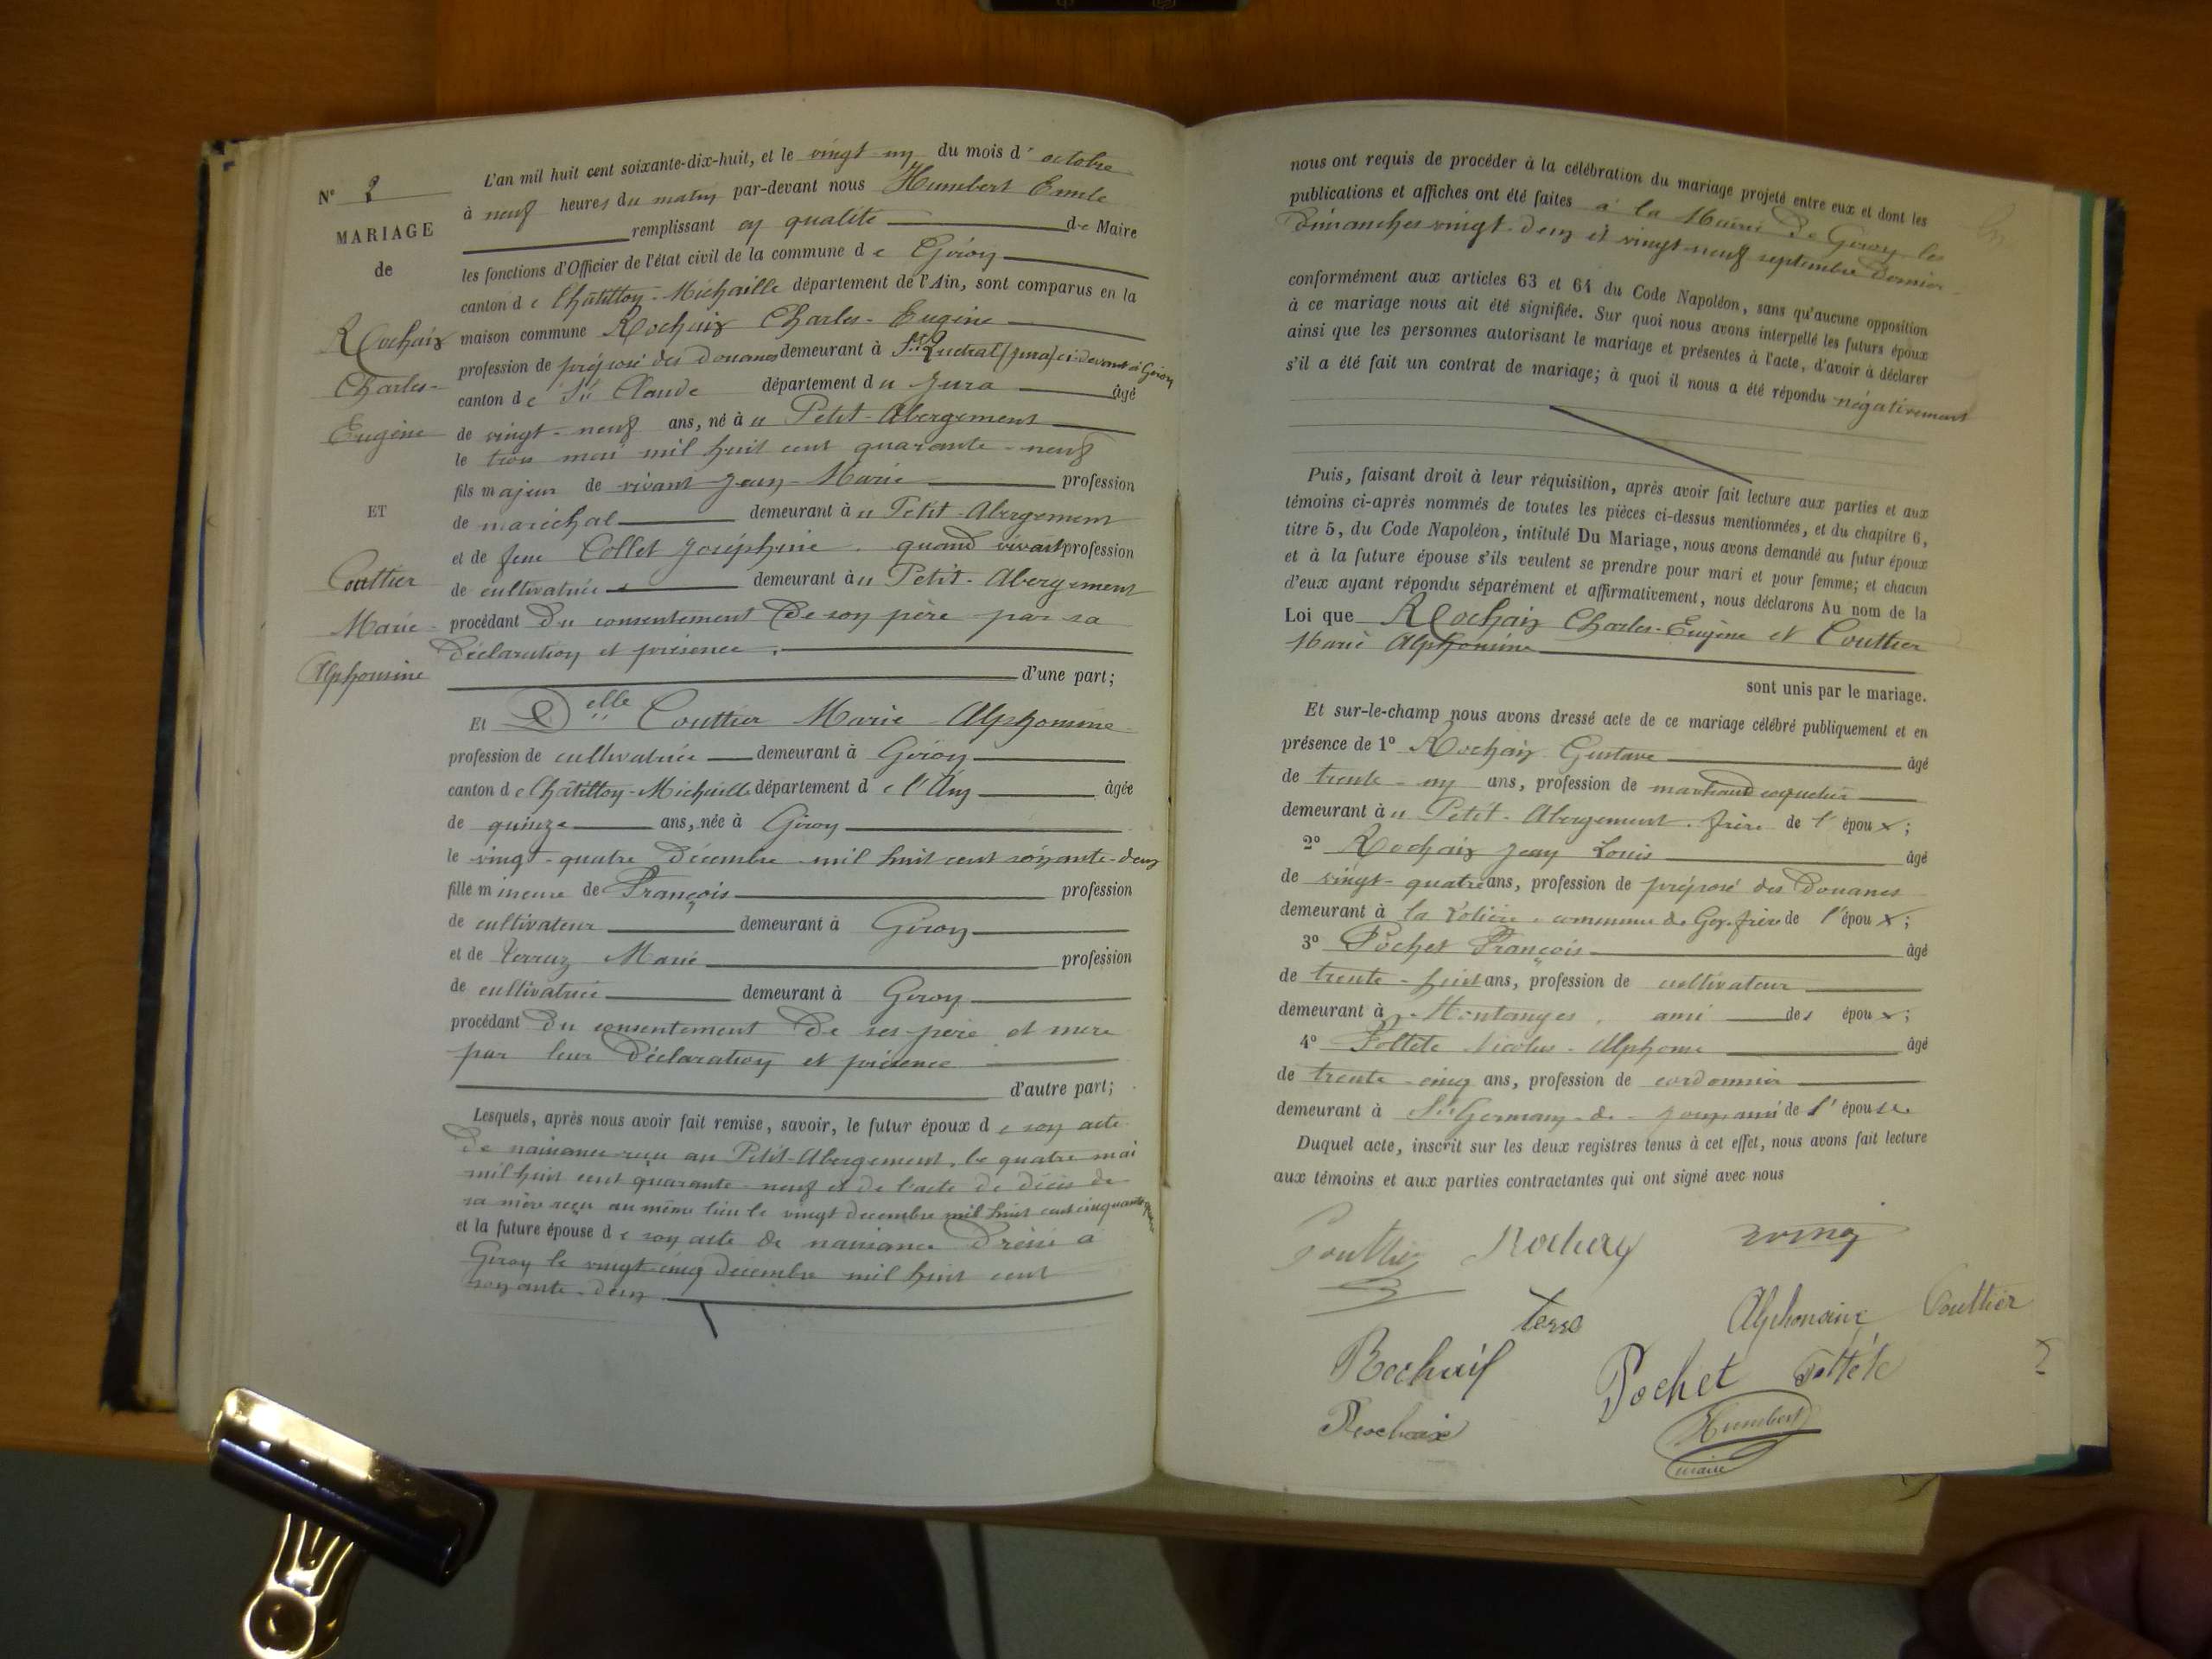 N° 2
MARIAGE
de
Rochaix
Charles-
Eugène
ET
Couttier
Marie-
Alphonsine
L'an mil huit cent soixante-dix-huit, et le vingt-un du mois d'octobre
à neuf heures du matin par-devant nous Humbert Emile
remplissant en qualité de Maire
les fonctions d'Officier de l'état civil de la commune de Giron
canton de Châtillon-Michaille département de l'Ain, sont comparus en la
maison commune Rochaix Charles-Eugène
profession de préposé des douanes demeurant à (Jura) ci-devant à Giron
canton de St Claude département du Jura âgé
de vingt-neuf ans, né à u Petit-Abergement
le trois mai mil huit cent quarante-neuf
fils majeur de vivant Jean-Marie profession
de maréchal demeurant à u Petit-Abergement
et de feue Collet Joséphine quand vivait profession
de cultivatrice demeurant à u Petit-Abergement
procédant du consentement de son père par sa
déclaration et présence
d'une part;
Et Delle Couttier Marie-Alphonsine
profession de cultivatrice demeurant à Giron
canton de Châtillon-Michaille département de l'Ain âgée
de quinze ans, née à Giron
le vingt-quatre décembre mil huit cent soixante-deux
fille mineure de François profession
de cultivateur demeurant à Giron
et de Marie profession
de cultivatrice demeurant à Giron
procédant du consentement de ses père et mère
par leur déclaration et présence
d'autre part;
Lesquels, après nous avoir fait remise, savoir, le futur époux de son acte
de naissance reçu au Petit-Abergement, le quatre mai
mil huit cent quarante-neuf et de l'acte de décès de
sa mère reçu au même lieu le vingt décembre mil huit cent cinquante
et la future épouse de son acte de naissance dressé à
Giron le vingt-cinq décembre mil huit cent
soixante-deux
nous ont requis de procéder à la célébration du mariage projeté entre eux et dont les
publications et affiches ont été faites à la Mairie de Giron les
dimanches vingt-deux et vingt-neuf septembre dernier
conformément aux articles 63 et 64 du Code Napoléon, sans qu'aucune opposition
à ce mariage nous ait été signifiée. Sur quoi nous avons interpellé les futurs époux
ainsi que les personnes autorisant le mariage et présentes à l'acte, d'avoir à déclarer
s'il a été fait un contrat de mariage; à quoi il nous a été répondu négativement
Puis, faisant droit à leur réquisition, après avoir fait lecture aux parties et aux
témoins ci-après nommés de toutes les pièces ci-dessus mentionnées, et du chapitre 6,
titre 5, du Code Napoléon, intitulé Du Mariage, nous avons demandé au futur époux
et à la future épouse s'ils veulent se prendre pour mari et pour femme; et chacun
d'eux ayant répondu séparément et affirmativement, nous déclarons Au nom de la
Loi que Rochaix Charles-Eugène et Couttier
Marie Alphonsine
sont unis par le mariage.
Et sur-le-champ nous avons dressé acte de ce mariage célébré publiquement et en
présence de 1° Rochaix Gustave âgé
de trente-un ans, profession de marchand coquetier
demeurant à u Petit-Abergement frère de l'époux;
2° Rochaix Jean Louis âgé
de vingt-quatre ans, profession de préposé des Douanes
demeurant à la commune de Gex. frère de l'époux;
3° Pochet François âgé
de trente-huit ans, profession de cultivateur
demeurant à Montanges, ami des époux;
4° Foltête Nicolas-Alphonse âgé
de trente-cinq ans, profession de cordonnier
demeurant à St Germain-de-Joux ami de l'épouse
Duquel acte, inscrit sur les deux registres tenus à cet effet, nous avons fait lecture
aux témoins et aux parties contractantes qui ont signé avec nous
Couttier Rochaix
Alphonsine Couttier
Rochaix Pochet Foltête
Rochaix Humbert
maire